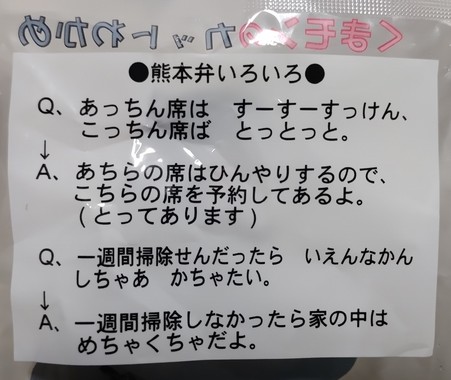 くまモンのカットわかめ
●熊本弁いろいろ●
Q、あっちん席は　すーすーすっけん、
こっちん席ば　とっとっと。
↓
A、あちらの席はひんやりするので、
こちらの席を予約してあるよ。
(とってあります)
Q、一週間掃除せんだったら　いえんなかん
しちゃあ　かちゃたい。
↓
A、一週間掃除しなかったら家の中は
めちゃくちゃだよ。